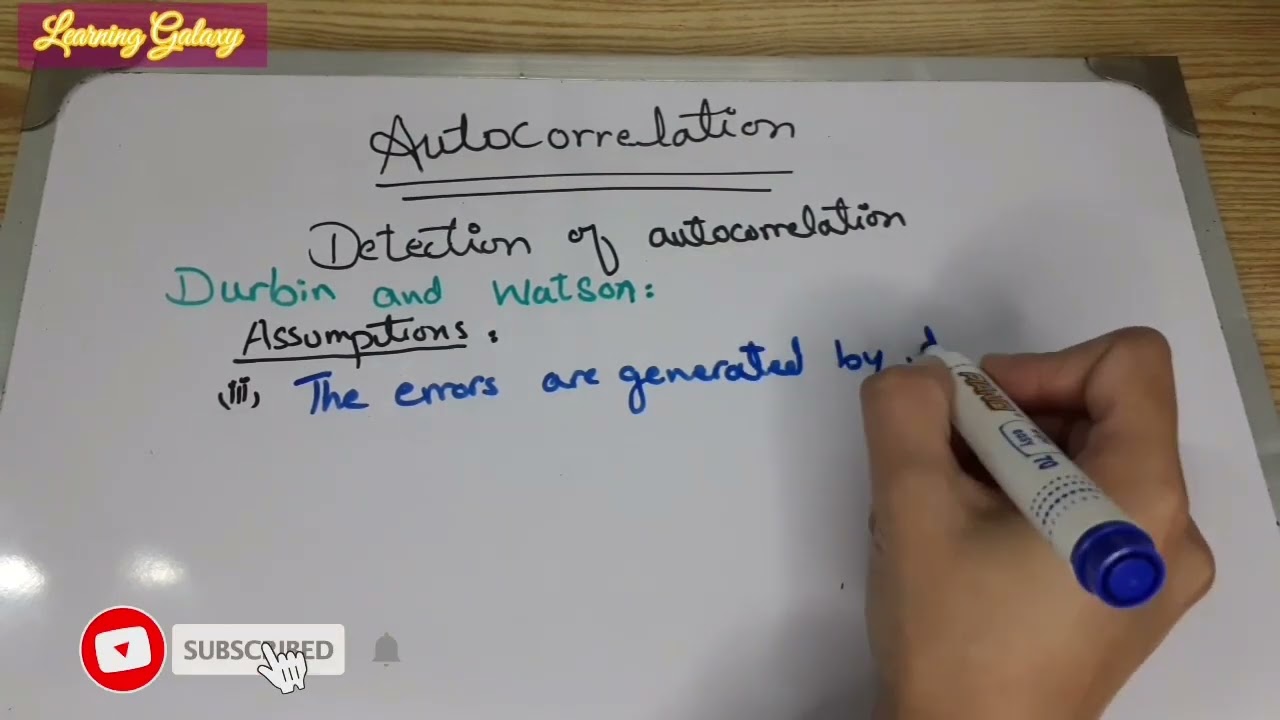 Learning Galaxy
Autocorrelation
Detection of autocorrelation
Durbin and Watson:
Assumptions:
(iii) The errors are generated by
PIANO
EASY TO
SUBSCRIBED